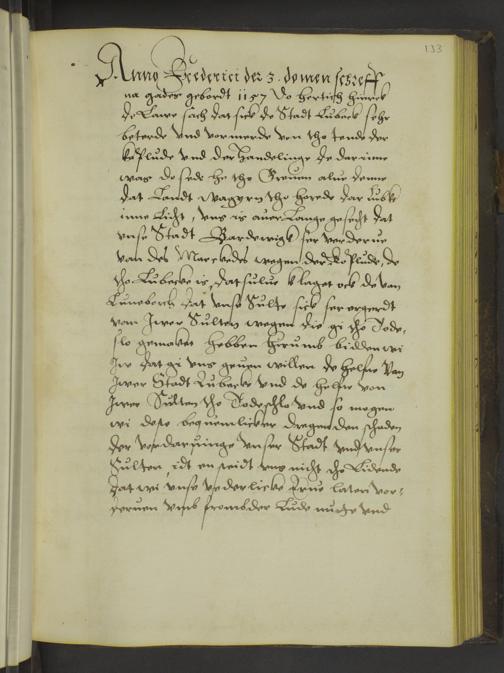 133
Anno Frederici der 3. domen schreff
na gades gebordt 1157 Do hertich Hinrick
de Lauwe sach dat sick de Stadt Lubeck sehr
beterde vnd vormerde von tho tende der
koplude vnd der Handelinge de darinne
was do sede he tho Greuen alue denne
dat Landt wagern tho horede dar lubke
inne licht, vns is auer lange gesecht dat
vnse Stadt Bardewigk ser vorderue
van des Marckedes wegen der koplude, de
tho Lubecke is, dat sulue klaget ock de van
Luneborch dat vnse Sulte sick ser ergerdt
von Jwer Sulten wegen die gi tho Tode-
slo gemaket hebben hirumb bidden wi
Jw dat gi vns geuen willen de helfte van
Jwer Stadt Lubecke vnd de helfte von
Jwer Sulten tho Todeschlo vnd so mogen
wi deste bequemlicker dregen den schaden
der vordaruinge vnser Stadt vnd vnser
Sulten, idt en steidt vns nicht tho lidende
dat wi vnse vederlicke Erue laten vor-
deruen vmb frombder Lude nutte vnd